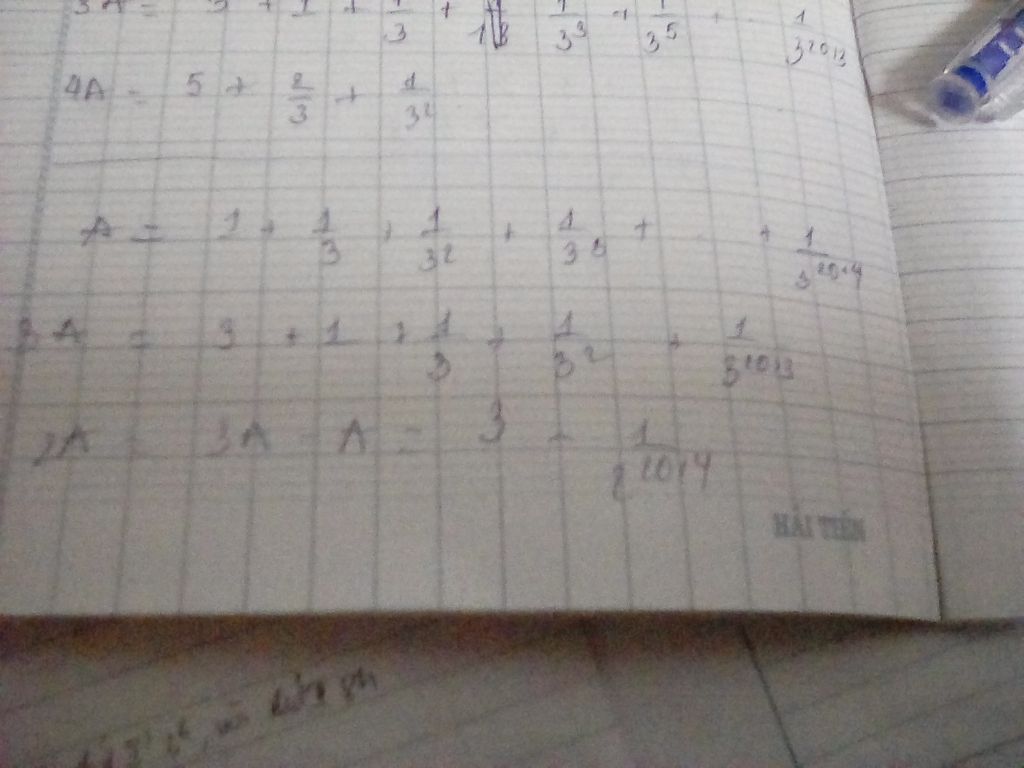 3A = 3 + 1 + 1/3 + 1/3^3 + 1/3^5 + 1/3^2013
4A = 5 + 2/3 + 1/3^2
A = 1 + 1/3 + 1/3^2 + 1/3^3 + . + 1/3^2014
3A = 3 + 1 + 1/3 + 1/3^2 + 1/3^2013
2A = 3A - A = 3 - 1/2^2014
HẢI TIẾN